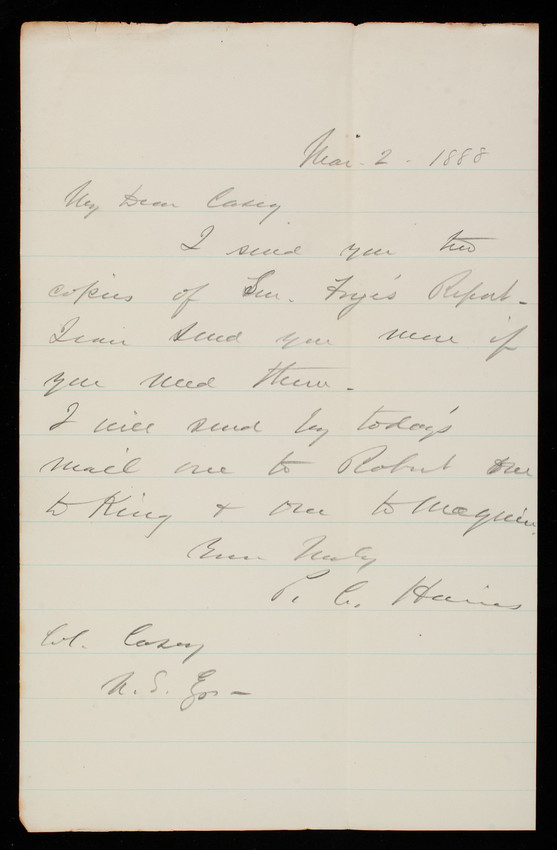 Mar. 2. 1888
My Dear Casey
I send you two
copies of Sen. Frye's Report -
I can send you more if
you need them -
I will send by today's
mail one to Robert one
to King & one to
Yours Truly
P. C. Hains
Col. Casey
U. S. Eng -